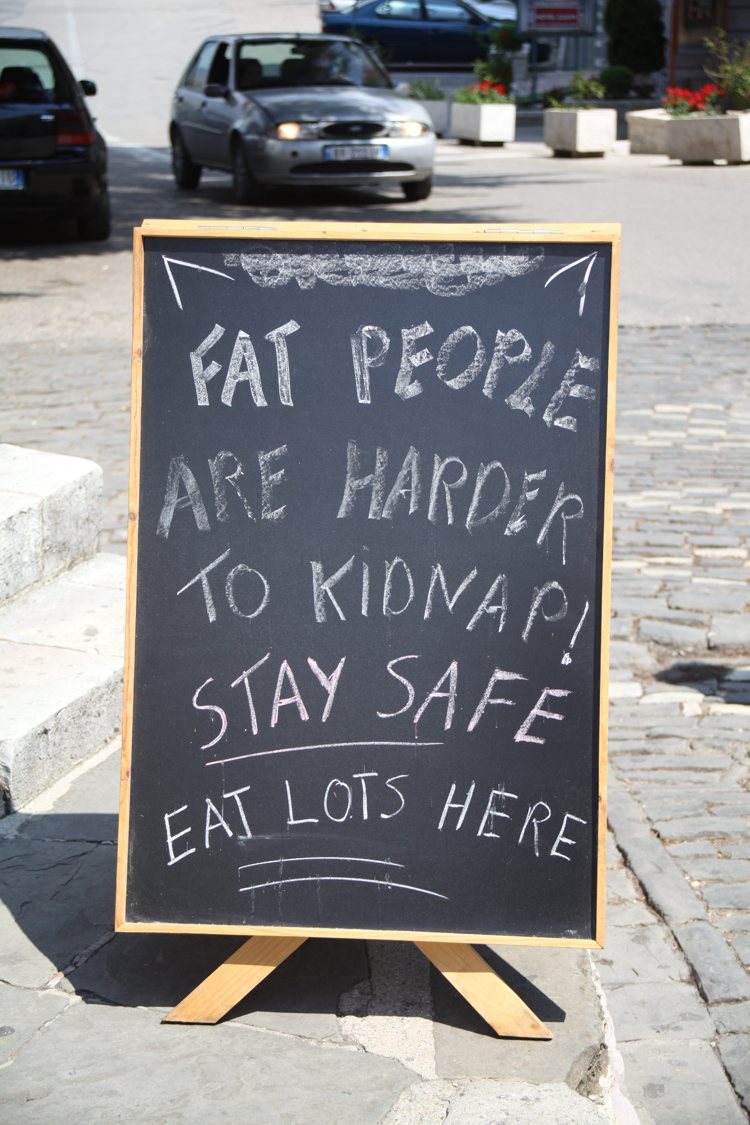 FAT PEOPLE
ARE HARDER
TO KIDNAP!
STAY SAFE
EAT LOTS HERE